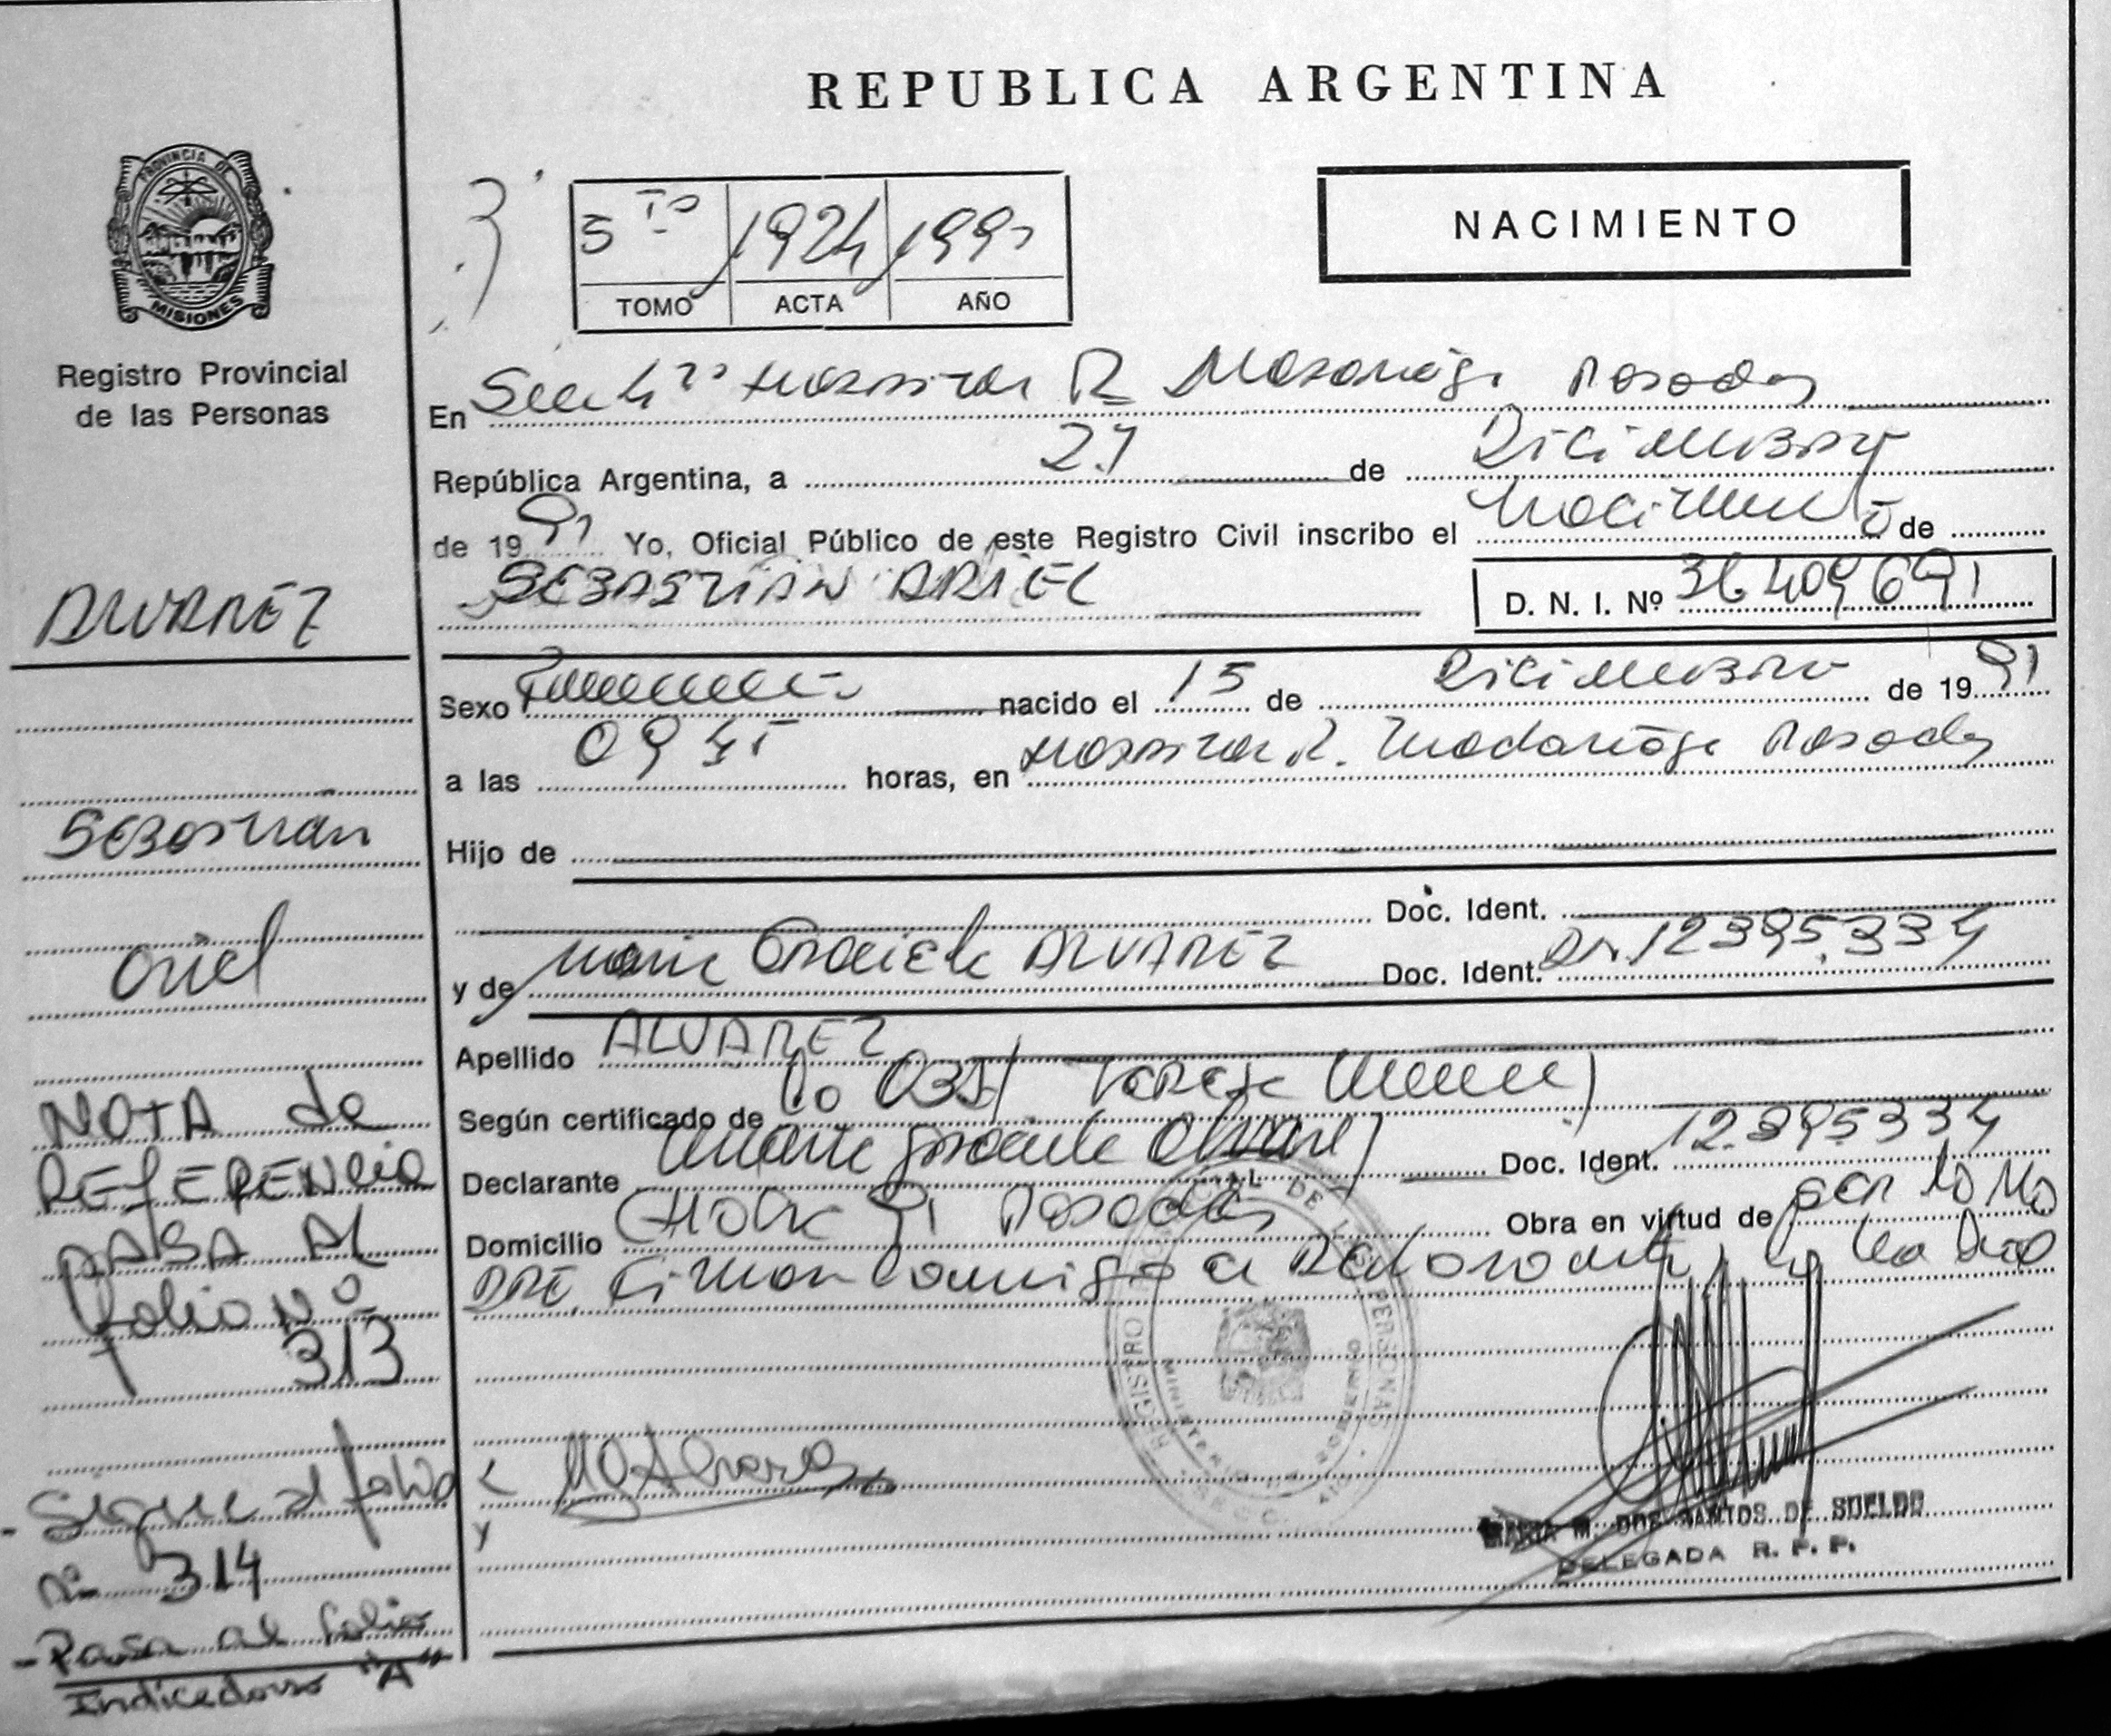 REPUBLICA ARGENTINA
PROVINCIA DE
MISIONES
Registro Provincial
de las Personas
5to 1924 1991
TOMO ACTA AÑO
NACIMIENTO
En Hospital R Madariaga Posadas
República Argentina, a 27 de Diciembre
de 1991 Yo, Oficial Público de este Registro Civil inscribo el Nacimiento de
SEBASTIAN ARIEL
D. N. I. Nº 36409691
ALVAREZ
Sebastian
Ariel
Sexo nacido el 15 de Diciembre de 1991
a las 09 horas, en Hospital R. Madariaga Posadas
Hijo de
Doc. Ident.
y de Maria Graciela ALVAREZ Doc. Ident. 12395.334
Apellido ALVAREZ
Según certificado de la Obst Teresa
Declarante Maria Graciela Alvarez Doc. Ident. 12.395334
Domicilio Posadas Obra en virtud de ser la
firman conmigo la declarante
NOTA de
REFERENCIA
PASA AL
folio Nº
313
Sigue al folio
Nº 314
- Pasa al folio
Indicedorso "A"
REGISTRO PROVINCIAL DE LAS PERSONAS
MINISTERIO DE GOBIERNO
MGAlvarez
MARIA M. DOS SANTOS DE SUELDO
DELEGADA R. P. P.